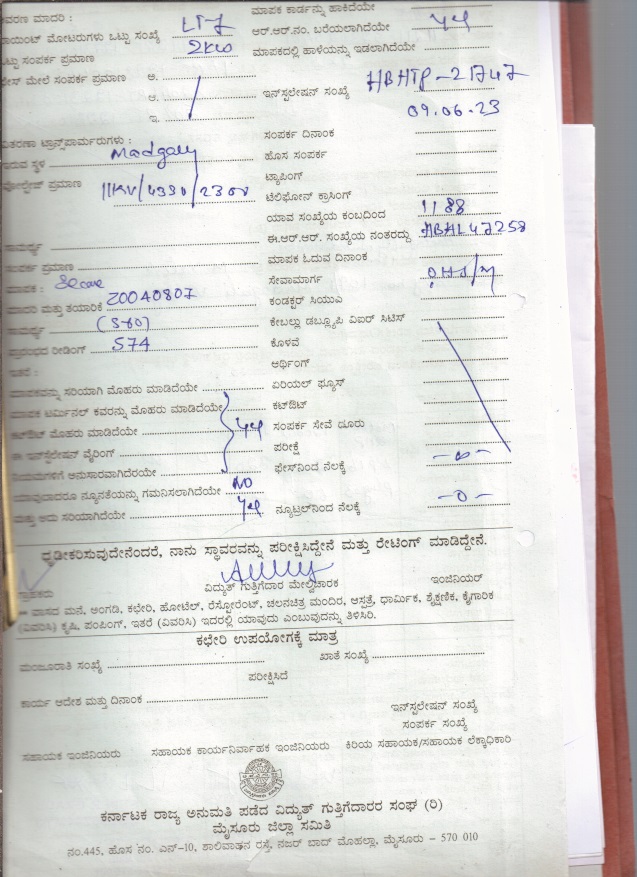 ಮಾಪಕ ಕಾರ್ಡನ್ನು ಹಾಕಿದೆಯೇ yes
ವರಣ ಮಾದರಿ : LT-7 ಆರ್.ಆರ್.ನಂ. ಬರೆಯಲಾಗಿದೆಯೇ
ಾಯಿಂಟ್ ಮೋಟರುಗಳು ಒಟ್ಟು ಸಂಖ್ಯೆ
ಒಟ್ಟು ಸಂಪರ್ಕ ಪ್ರಮಾಣ 2KW ಮಾಪಕದಲ್ಲಿ ಹಾಳೆಯನ್ನು ಇಡಲಾಗಿದೆಯೇ
ೇಸ್ ಮೇಲೆ ಸಂಪರ್ಕ ಪ್ರಮಾಣ ಅ.
ಆ. ಇನ್‌ಸ್ಟಲೇಷನ್ ಸಂಖ್ಯೆ HBHTP-21747
ಇ. 09.06.23
ವಿತರಣಾ ಟ್ರಾನ್ಸ್‌ಪಾರ್ಮರುಗಳು : ಸಂಪರ್ಕ ದಿನಾಂಕ
ಇರುವ ಸ್ಥಳ Madgally ಹೊಸ ಸಂಪರ್ಕ
ವೋಲ್ಟೇಜ್ ಪ್ರಮಾಣ 11KV/433V/230V ಟ್ಯಾಪಿಂಗ್
ಟೆಲಿಫೋನ್ ಕ್ರಾಸಿಂಗ್
ಯಾವ ಸಂಖ್ಯೆಯ ಕಂಬದಿಂದ 1188
ಸಾಮರ್ಥ್ಯ ಈ.ಆರ್.ಆರ್. ಸಂಖ್ಯೆಯ ನಂತರದ್ದು HBHL47258
ಸಂಪರ್ಕ ಪ್ರಮಾಣ ಮಾಪಕ ಓದುವ ದಿನಾಂಕ
ಮಾಪಕ : Secure ಸೇವಾಮಾರ್ಗ OHS/M
ಮಾದರಿ ಮತ್ತು ತಯಾರಿಕೆ 20040807 ಕಂಡಕ್ಟರ್ ಸಿಯುಎ
ಸಾಮರ್ಥ್ಯ (5-60) ಕೇಬಲ್ಲು ಡಬ್ಲ್ಯೂಪಿ ವಿಐರ್ ಸಿಟಿಸ್
ಪ್ರಾರಂಭದ ರೀಡಿಂಗ್ 574 ಕೊಳವೆ
ಇತರೆ : ಅರ್ಥಿಂಗ್
ಮಾಪಕವನ್ನು ಸರಿಯಾಗಿ ಮೊಹರು ಮಾಡಿದೆಯೇ ಏರಿಯಲ್ ಫ್ಯೂಸ್
ಮಾಪಕ ಟರ್ಮಿನಲ್ ಕವರನ್ನು ಮೊಹರು ಮಾಡಿದೆಯೇ ಕಟ್‌ಔಟ್
ಕಟ್‌ಔಟ್ ಮೊಹರು ಮಾಡಿದೆಯೇ yes ಸಂಪರ್ಕ ಸೇವೆ ದೂರು
ಇನ್‌ಸ್ಟಲೇಷನ್ ವೈರಿಂಗ್ ಪರೀಕ್ಷೆ
ನಿಯಮಗಳಿಗೆ ಅನುಸಾರವಾಗಿದೆರೆಯೇ ಫೇಸ್‌ನಿಂದ ನೆಲಕ್ಕೆ -∞-
ಯಾವುದಾದರೂ ನ್ಯೂನತೆಯನ್ನು ಗಮನಿಸಲಾಗಿದೆಯೇ NO
ಮತ್ತು ಅದು ಸರಿಯಾಗಿದೆಯೇ yes ನ್ಯೂಟ್ರಲ್‌ನಿಂದ ನೆಲಕ್ಕೆ -0-
ಧೃಡೀಕರಿಸುವುದೇನೆಂದರೆ, ನಾನು ಸ್ಥಾವರವನ್ನು ಪರೀಕ್ಷಿಸಿದ್ದೇನೆ ಮತ್ತು ರೇಟಿಂಗ್ ಮಾಡಿದ್ದೇನೆ.
ಗ್ರಾಹಕರು ವಿದ್ಯುತ್ ಗುತ್ತಿಗೆದಾರ ಮೇಲ್ವಿಚಾರಕ ಇಂಜಿನಿಯರ್
– ವಾಸದ ಮನೆ, ಅಂಗಡಿ, ಕಛೇರಿ, ಹೋಟೆಲ್, ರೆಸ್ಟೋರೆಂಟ್, ಚಲನಚಿತ್ರ ಮಂದಿರ, ಆಸ್ಪತ್ರೆ, ಧಾರ್ಮಿಕ, ಶೈಕ್ಷಣಿಕ, ಕೈಗಾರಿಕ
(ವಿವರಿಸಿ) ಕೃಷಿ, ಪಂಪಿಂಗ್, ಇತರೆ (ವಿವರಿಸಿ) ಇದರಲ್ಲಿ ಯಾವುದು ಎಂಬುವುದನ್ನು ತಿಳಿಸಿರಿ.
ಕಛೇರಿ ಉಪಯೋಗಕ್ಕೆ ಮಾತ್ರ
ಮಂಜೂರಾತಿ ಸಂಖ್ಯೆ ಖಾತೆ ಸಂಖ್ಯೆ
ಪರೀಕ್ಷಿಸಿದೆ
ಕಾರ್ಯ ಆದೇಶ ಮತ್ತು ದಿನಾಂಕ
ಇನ್‌ಸ್ಟಲೇಷನ್ ಸಂಖ್ಯೆ
ಸಂಪರ್ಕ ಸಂಖ್ಯೆ
ಸಹಾಯಕ ಇಂಜಿನಿಯರು ಸಹಾಯಕ ಕಾರ್ಯನಿರ್ವಾಹಕ ಇಂಜಿನಿಯರು ಕಿರಿಯ ಸಹಾಯಕ/ಸಹಾಯಕ ಲೆಕ್ಕಾಧಿಕಾರಿ
ಕರ್ನಾಟಕ ರಾಜ್ಯ ಅನುಮತಿ ಪಡೆದ ವಿದ್ಯುತ್ ಗುತ್ತಿಗೆದಾರರ ಸಂಘ (ರಿ)
ಮೈಸೂರು ಜಿಲ್ಲಾ ಸಮಿತಿ
ನಂ.445, ಹೊಸ ನಂ. ಎನ್-10, ಶಾಲಿವಾಹನ ರಸ್ತೆ, ನಜರ್ ಬಾದ್ ಮೊಹಲ್ಲಾ, ಮೈಸೂರು – 570 010